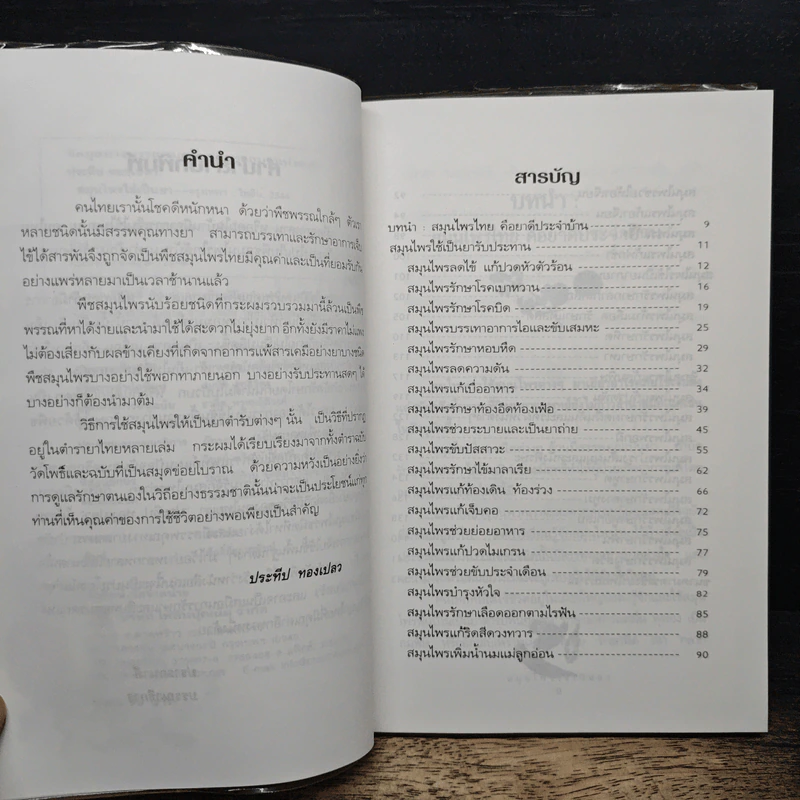 คำนำ
คนไทยเรานั้นโชคดีหนักหนา ด้วยว่าพืชพรรณใกล้ๆ
หลายชนิดนั้นมีสรรพคุณทางยา สามารถบรรเทาและรักษาอาการ
ไข้ได้สารพันจึงถูกจัดเป็นพืชสมุนไพรไทยมีคุณค่าและเป็นที่ยอมรับกัน
อย่างแพร่หลายมาเป็นเวลาช้านานแล้ว
พืชสมุนไพรนับร้อยชนิดที่กระผมรวบรวมมานี้ล้วนเป็น
พรรณที่หาได้ง่ายและนำมาใช้ได้สะดวกไม่ยุ่งยาก อีกทั้งยังมีราคาไม่
ไม่ต้องเสี่ยงกับผลข้างเคียงที่เกิดจากอาการแพ้สารเคมีอย่างยาบางชนิด
พืชสมุนไพรบางอย่างใช้พอกทาภายนอก บางอย่างรับประทานสดๆ ได้
บางอย่างก็ต้องนำมาต้ม
วิธีการใช้สมุนไพรให้เป็นยาตำรับต่างๆ นั้น เป็นวิธีที่ปรากฏ
อยู่ในตำรายาไทยหลายเล่ม กระผมได้เรียบเรียงมาจากทั้งตำราฉบับ
วัดโพธิ์และฉบับที่เป็นสมุดข่อยโบราณ ด้วยความหวังเป็นอย่างยิ่งว่า
การดูแลรักษาตนเองในวิถีอย่างธรรมชาตินั้นน่าจะเป็นประโยชน์แก่ทุก
ท่านที่เห็นคุณค่าของการใช้ชีวิตอย่างพอเพียงเป็นสำคัญ
ประทีป ทองเปลว
สารบัญ
บทนำ : สมุนไพรไทย คือยาดีประจำบ้าน 9
สมุนไพรใช้เป็นยารับประทาน 11
สมุนไพรลดไข้ แก้ปวดหัวตัวร้อน 12
สมุนไพรรักษาโรคเบาหวาน 16
สมุนไพรรักษาโรคบิด 19
สมุนไพรบรรเทาอาการไอและขับเสมหะ 25
สมุนไพรรักษาหอบหืด 29
สมุนไพรลดความดัน 32
สมุนไพรแก้เบื่ออาหาร 34
สมุนไพรรักษาท้องอืดท้องเฟ้อ 39
สมุนไพรช่วยระบายและเป็นยาถ่าย 45
สมุนไพรขับปัสสาวะ 55
สมุนไพรรักษาไข้มาลาเรีย 62
สมุนไพรแก้ท้องเดิน ท้องร่วง 66
สมุนไพรแก้เจ็บคอ 72
สมุนไพรช่วยย่อยอาหาร 75
สมุนไพรแก้ปวดไมเกรน 77
สมุนไพรช่วยขับประจำเดือน 79
สมุนไพรบำรุงหัวใจ 82
สมุนไพรรักษาเลือดออกตามไรฟัน 85
สมุนไพรแก้ริดสีดวงทวาร 88
สมุนไพรเพิ่มน้ำนมแม่ลูกอ่อน 90